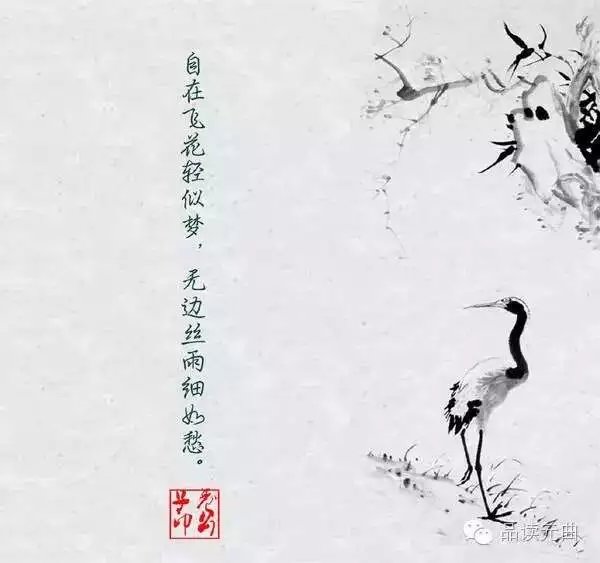 自在飞花轻似梦，无边丝雨细如愁。
品读元曲